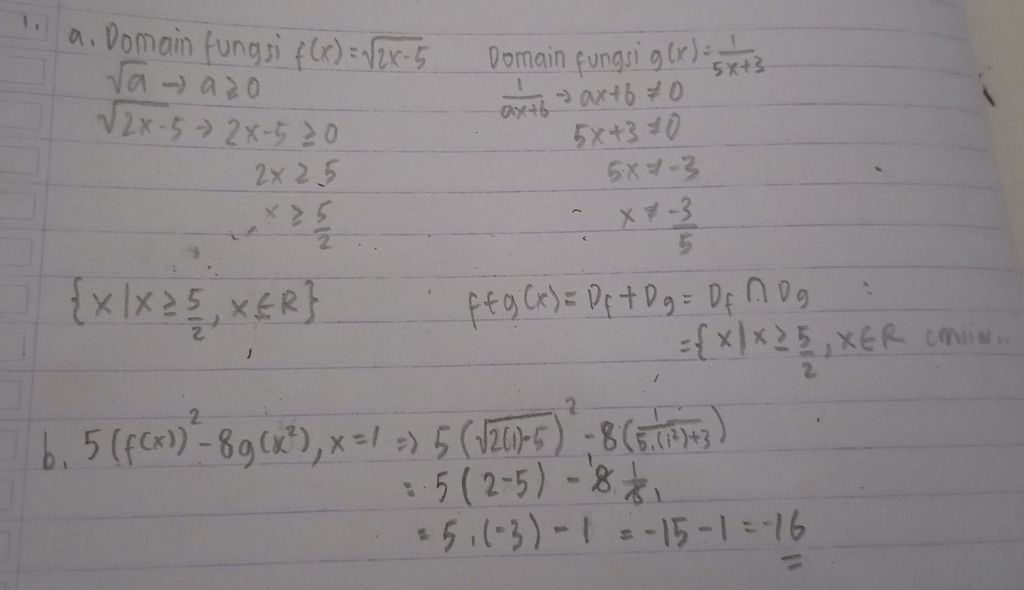 1.
a. Domain fungsi f(x) = √2x-5
√a → a ≥ 0
√2x-5 → 2x-5 ≥ 0
2x ≥ 5
x ≥ 5/2
{x | x ≥ 5/2, x ∈ R}
Domain fungsi g(x) = 1/5x+3
1/ax+b → ax+b ≠ 0
5x+3 ≠ 0
5x ≠ -3
x ≠ -3/5
f+g(x) = Df + Dg = Df ∩ Dg
= {x | x ≥ 5/2, x ∈ R
b. 5(f(x))² - 8g(x²), x = 1 ⇒ 5(√2(1)-5)² - 8(1/5.(1²)+3)
= 5(2-5) - 8 1/8
= 5.(-3) - 1 = -15 - 1 = -16